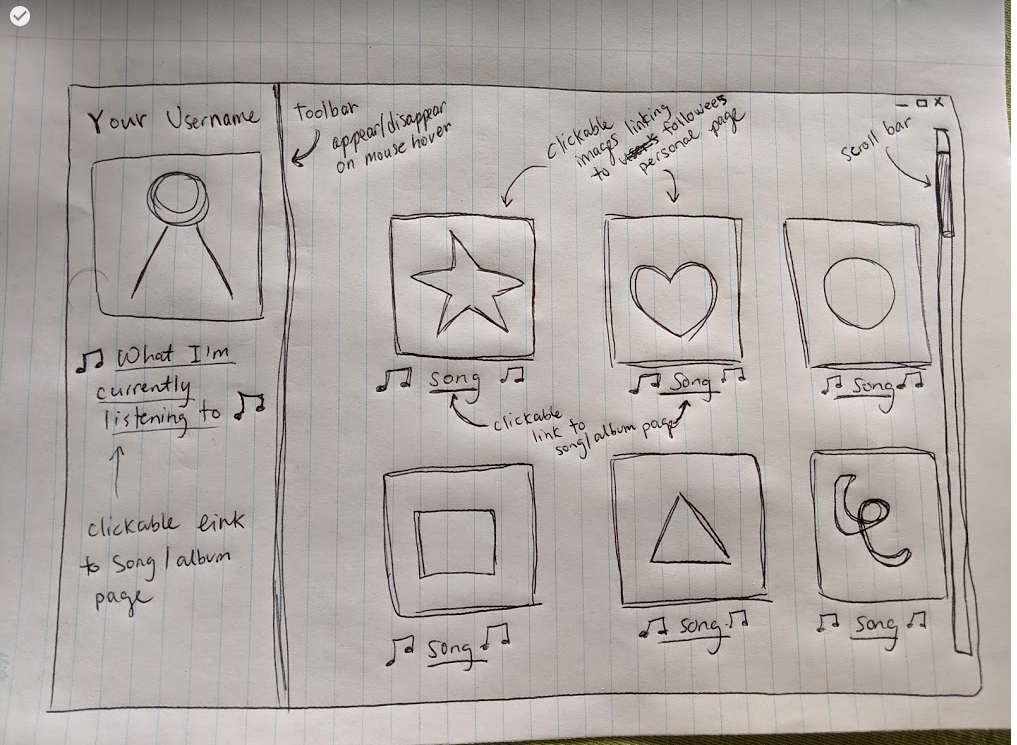 Your Username
What I'm
currently
listening to
clickable link
to song/album
page
toolbar
appear/disappear
on mouse hover
clickable
images linking
to user's followees
personal page
scroll bar
X
Song
Song
Song
clickable
link to
song/album page
Song
Song
Song